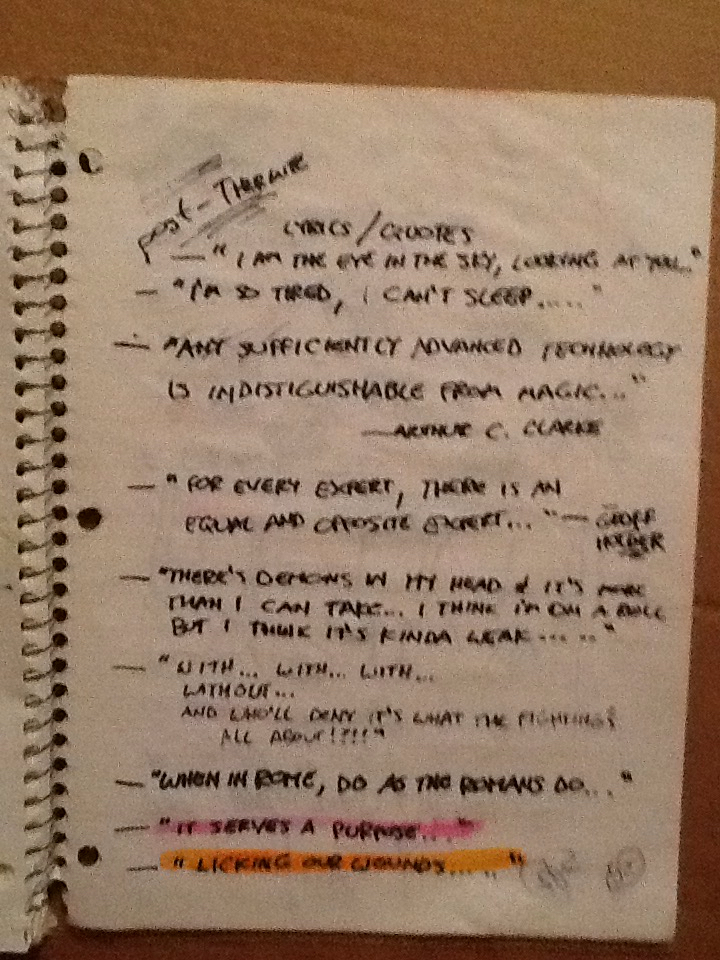 POST-THERMIE
LYRICS/QUOTES
— "I AM THE EYE IN THE SKY, LOOKING AT YOU.."
— "I'M SO TIRED, I CAN'T SLEEP....."
— "ANY SUFFICIENTLY ADVANCED TECHNOLOGY
IS INDISTIGUISHABLE FROM MAGIC..."
— ARTHUR C. CLARKE
— "FOR EVERY EXPERT, THERE IS AN
EQUAL AND OPPOSITE EXPERT..." — GEOFF
— "THERE'S DEMONS IN MY HEAD & IT'S MORE
THAN I CAN TAKE... I THINK I'M ON A ROLL
BUT I THINK IT'S KINDA WEAK....."
— "WITH... WITH... WITH...
WITHOUT...
AND WHO'LL DENY IT'S WHAT THE FIGHTING'S
ALL ABOUT!?!!"
— "WHEN IN ROME, DO AS THE ROMANS DO..."
— "IT SERVES A PURPOSE..."
— "LICKING OUR WOUNDS....."